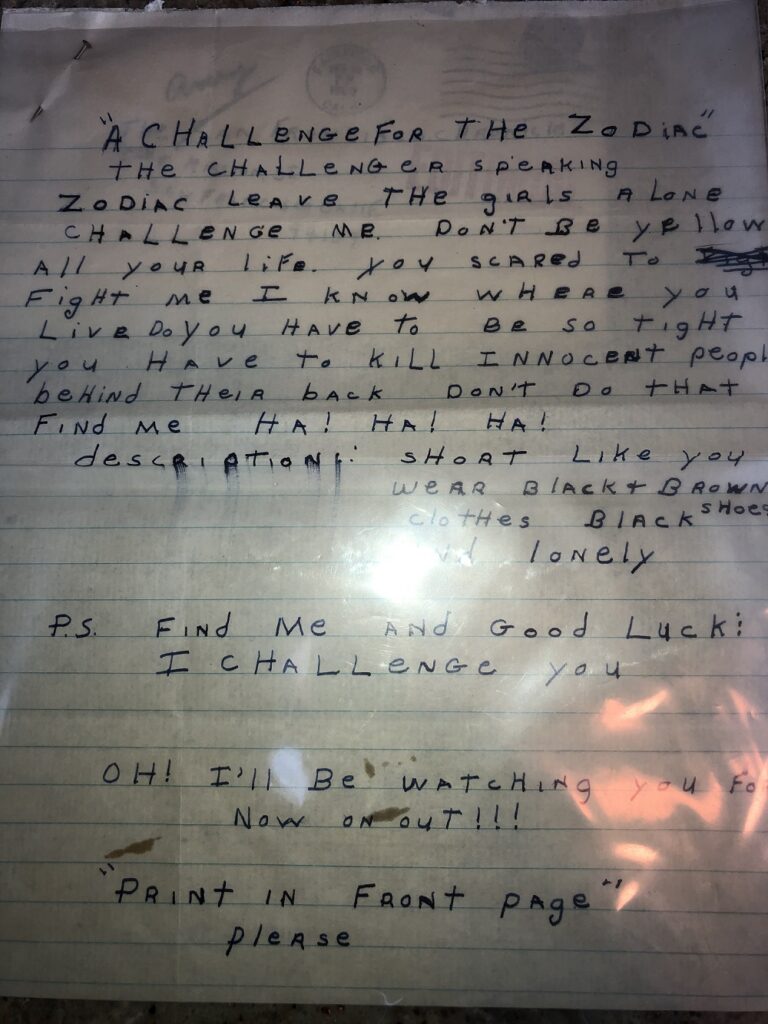 "A CHALLENGE FOR THE ZODIAC"
THE CHALLENGER SPEAKING
ZODIAC LEAVE THE giRls ALONE
CHALLENGE ME. DON'T BE yellow
All youR liFe. you SCARED TO
Fight me I KNOW WHERE you
Live Do you HAVE to BE so tigHT
you HAVE to KILL INNOCENT peopl
beHIND THEIR bACK DON'T DO tHAT
FIND ME HA! HA! HA!
descRIPTION: SHORT LIKE you
WEAR BlACK + BROWN
clotHes BlACK SHOES
loNely
P.S. FIND ME AND GOOD LUCK!
I CHALLENGE you
OH! I'll BE WATCHING you Fo
NOW ON OUT!!!
"PRINT IN FRONT PAGE"
pleASe